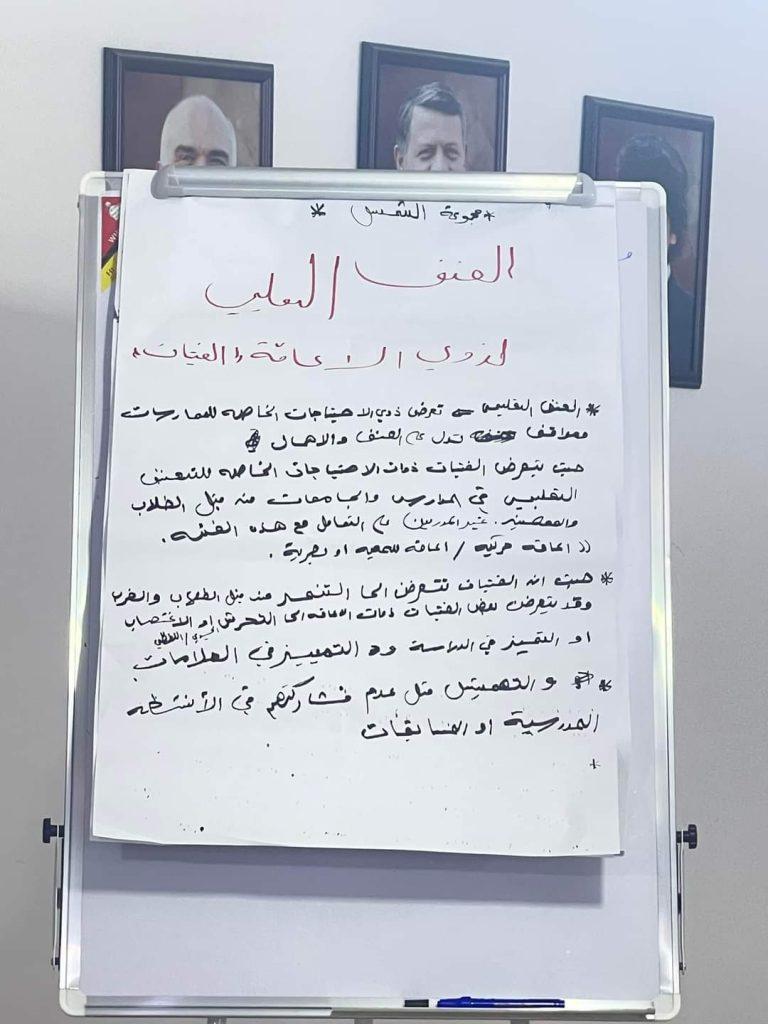 * مجموعة الشمس *
العنف التعليمي
لذوي الاعاقة "الفتيات"
* العنف التعليمي = تعرض ذوي الاحتياجات الخاصه للممارسات
ومواقف تدل على العنف والاهمال
حيث تتعرض الفتيات ذوات الاحتياجات الخاصه للتعنيف
التعليمي في المدارس والجامعات من قبل الطلاب
والمعلمين. غير المدربين) على التعامل مع هذه الفئه.
(( اعاقه حركيه / اعاقه سمعيه او بصرية.
* حيث ان الفتيات تتعرض الى التنمر من قبل الطلاب والضرب
وقد يتعرضن بعض الفتيات ذوات الاعاقه الى التحرش او الاغتصاب
الجسدي / اللفظي
او التمييز في الدراسة والتمييز في العلامات
* والتهميش مثل عدم مشاركتهم في الأنشطه
المدرسية او المسابقات
*